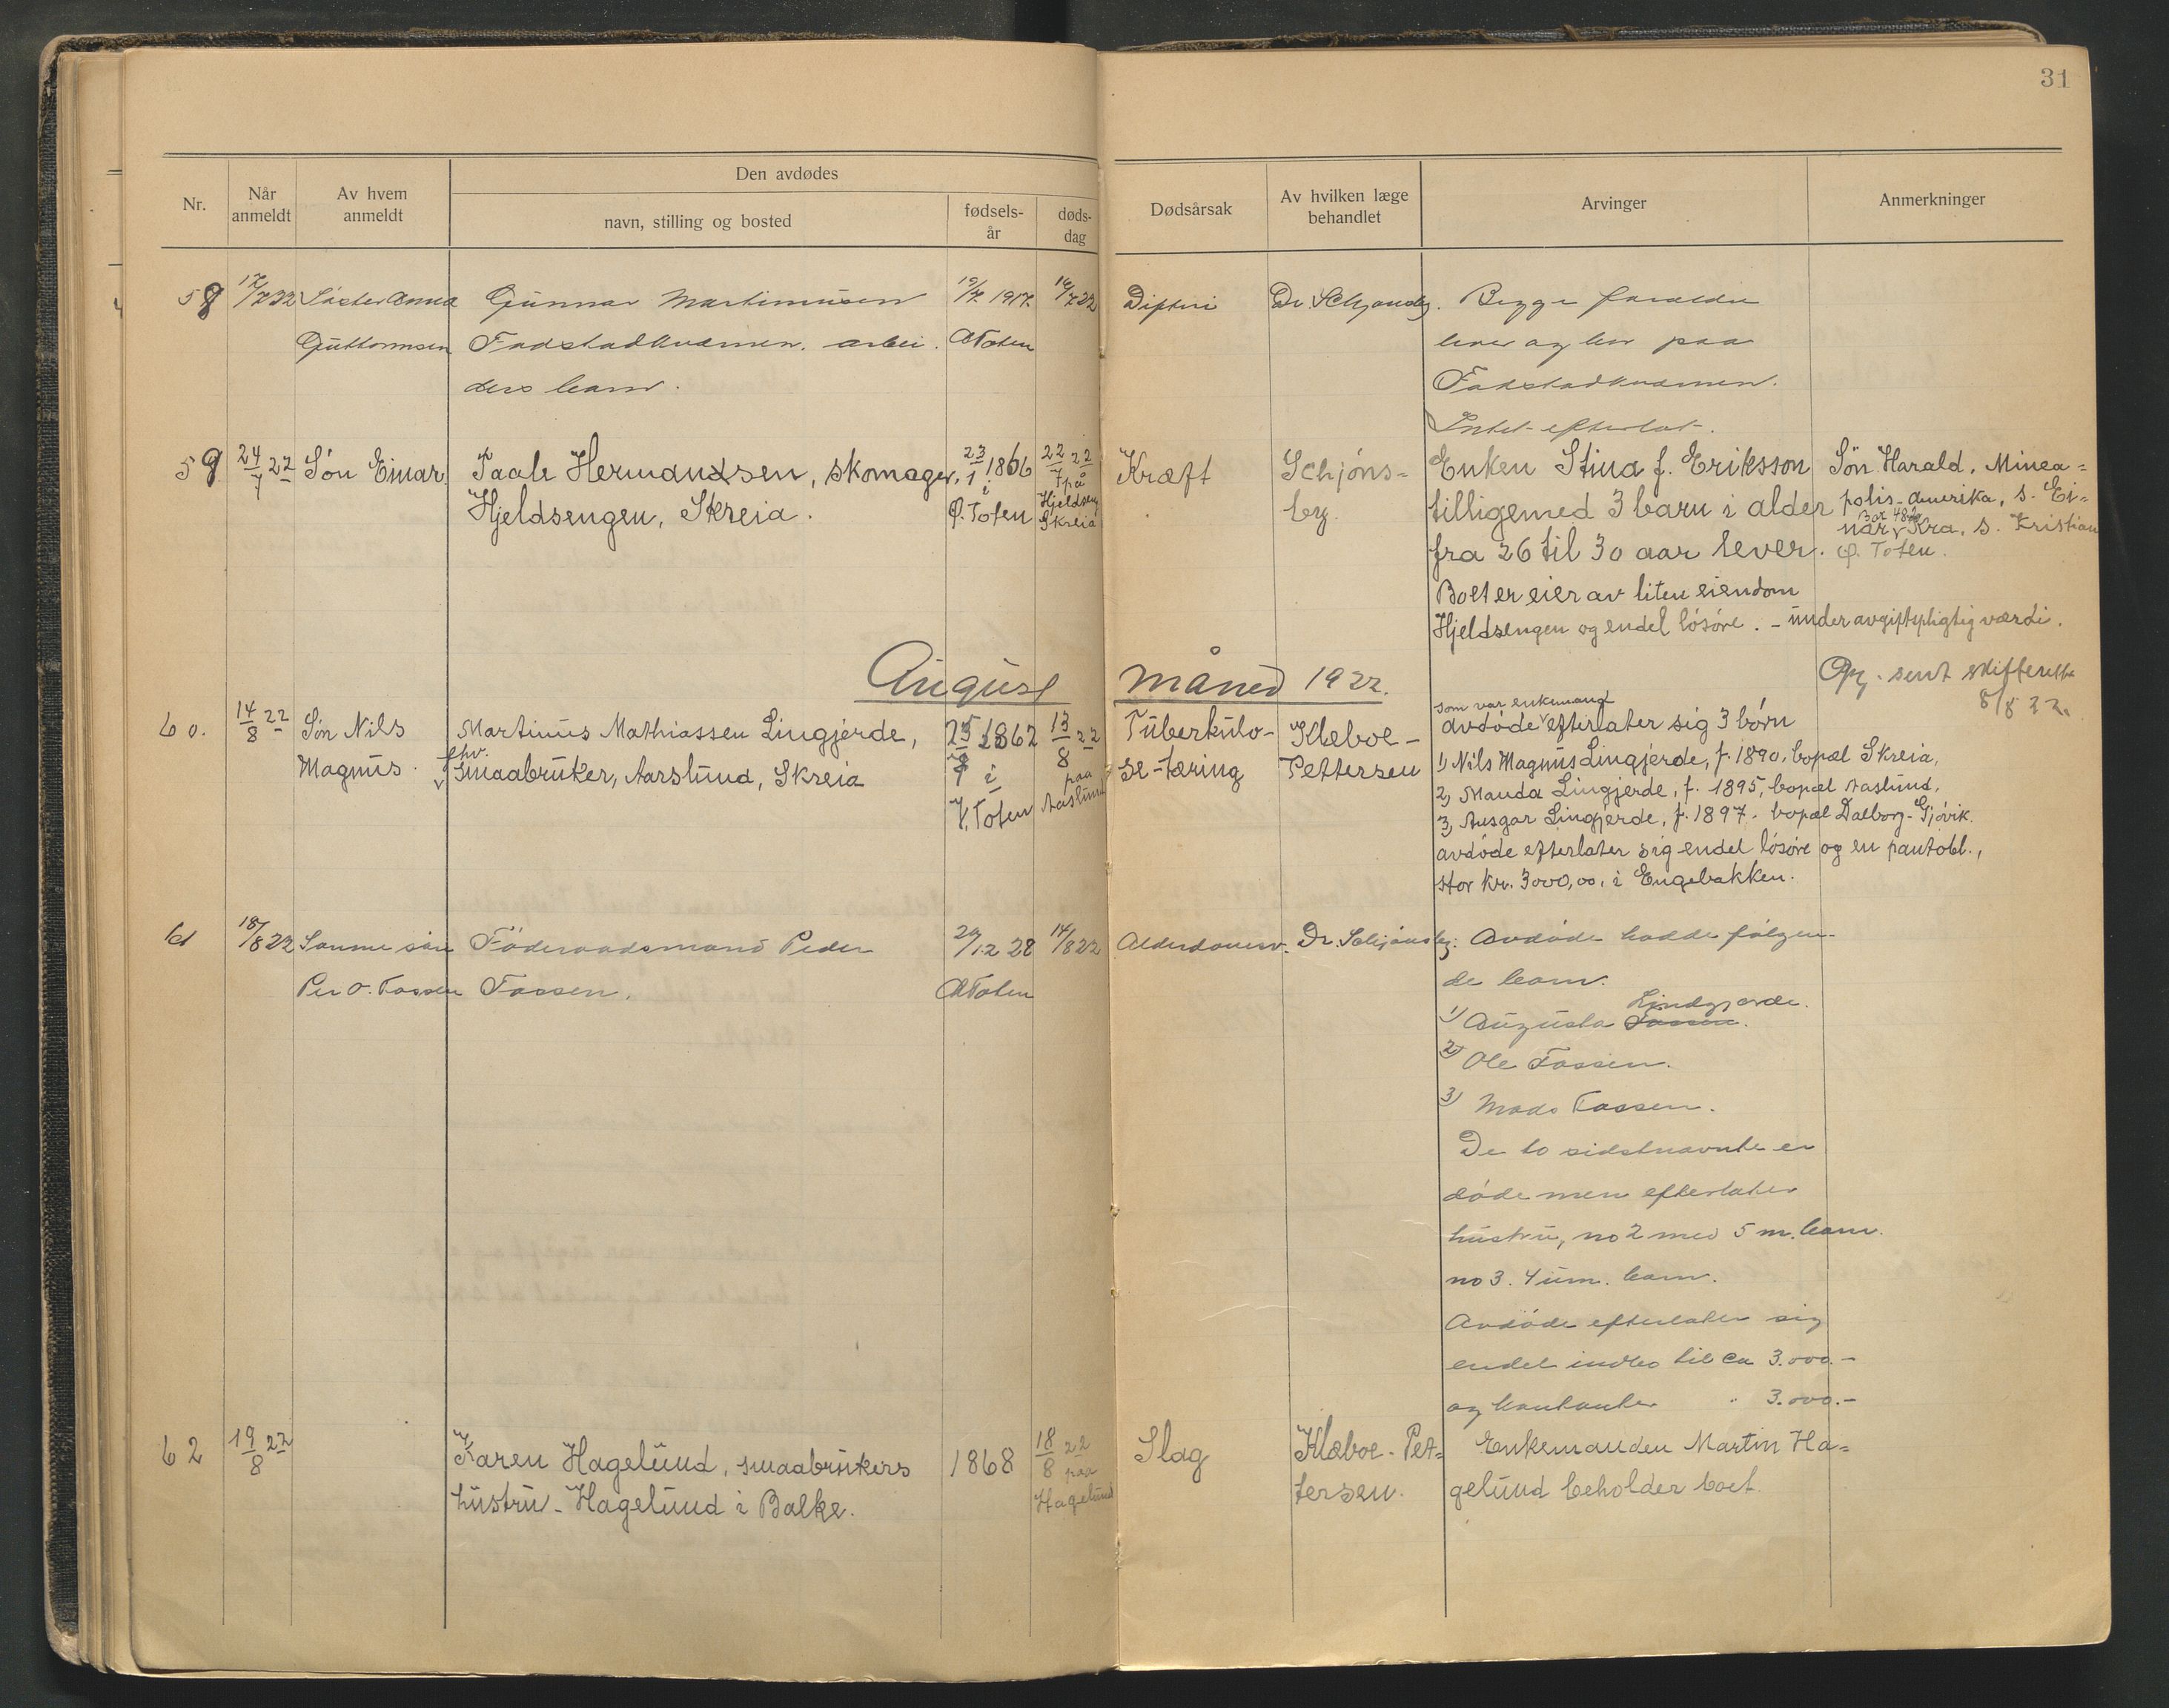 31
Nr.
Når anmeldt
Av hvem anmeldt
Den avdødes
navn, stilling og bosted
fødsels-år
døds-dag
Dødsårsak
Av hvilken læge behandlet
Arvinger
Anmerkninger
58 Søster Anna Gunnar Martinusen 1917. Difteri Dr. Schjønsbg. Begge forældre
Guttormsen Fodstadkvernen. arbei. Ø Toten lever og bor paa
ders barn. Fodstadkvernen.
Intet efterlat.
59 24/7 22 Søn Einar. Paale Hermandsen, skomager, 23/1 1866 22/7 22 Kræft Schjøns= Enken Stina f. Eriksson Søn Harald, Minea=
Hjeldsengen, Skreia. i Ø. Toten på Hjeldseng Skreia berg. tilligemed 3 barn i alder polis-Amerika, s. Ei=
nar, Kra, s. Kristian
fra 26 til 30 aar lever. Ø. Toten.
Boet er eier av liten eiendom
Hjeldsengen og endel løsøre. - under avgiftspligtig værdi.
August måned 1922.
Opg. sent skifteretten
8/8 22.
som var enkemand
60. 14/8 22 Søn Nils Martinus Mathiassen Lingjerde, 1862 13/8 22 Tuberkulo- Klæboe- avdøde efterlater sig 3 børn
Magnus. fhv. Smaabruker, Aarslund, Skreia i V. Toten paa Aaslund se-tæring Pettersen 1) Nils Magnus Lingjerde, f. 1890, bopæl Skreia,
2, Manda Lingjerde, f. 1895, bopæl Aaslund,
3, Ansgar Lingjerde, f. 1897. bopæl Dalborg-Gjøvik.
avdøde efterlater sig endel løsøre og en pantobl.,
stor kr. 3000,00, i Engebakken.
61 18/8 22 Samme søn Føderaadsmand Peder 28 14/8 22 Alderdomssv. Dr. Schjønsbg. Avdøde hadde følgen-
Per O. Fossen Fossen. Ø Toten de barn.
Lindgjerde.
1) Augusta Fossen.
2) Ole Fossen.
3) Mads Fossen.
De to sidstnævnte er
døde men efterlater
hustru, no 2 med 5 m. barn.
no 3. 4 um. barn.
Avdøde efterlater sig
endel indbo til ca 3.000.-
og kontanter " 3.000.-
62 19/8 22 Karen Hagelund, smaabrukers 1868 18/8 22 Slag Klæboe-Pet= Enkemanden Martin Ha=
hustru - Hagelund i Balke. paa Hagelund tersen. gelund beholder boet.